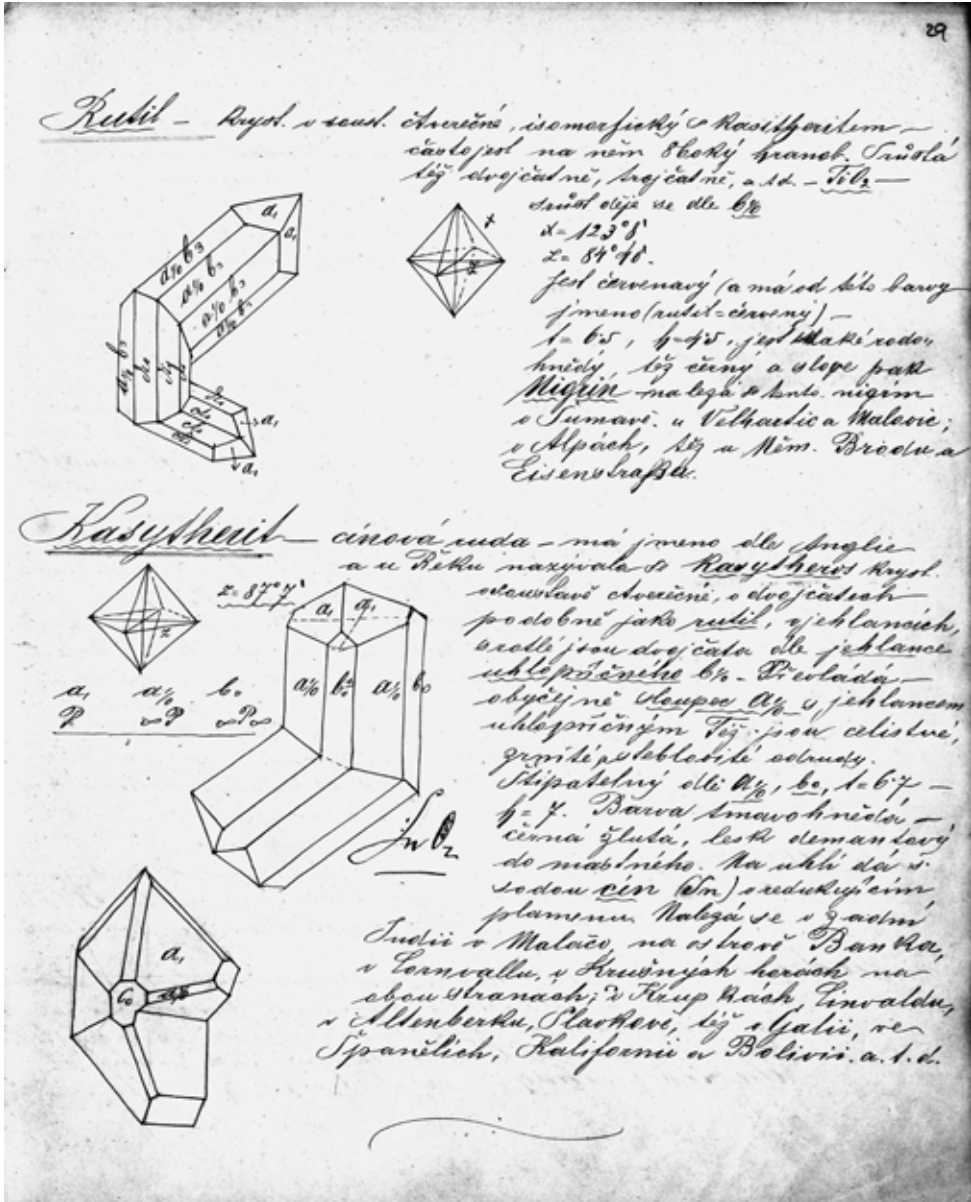 29
Rutil – Kryst. v soust. čtverečné, isomorfický s Kasitheritem –
často jest na něm 8boký hranol. Srůstá
též dvojčatně, trojčatně, a.t.d. – TiO₂ –
srůst děje se dle
x = 123°8'
z = 84°40'.
Jest červenavý (a má od této barvy
jmeno (rutil = červený) –
t = 6·5, h = 4·5, jest také rudo-
hnědý, též černý a slope pak
Nigrin nalezá se tento nigrin
v Šumavě u Velhartic a Malovic;
v Alpách, též u Něm. Brodu a
Eisenstrassu.
x
z
a₁
a₁
a₁
a₁
Kasytherit – cínová ruda – má jmeno dle Anglie
a u Řeků nazývala se Kasytheros Kryst.
v soustavě čtverečné, v dvojčatech
podobně jako rutil, v jehlancích,
srotlé jsou dvojčata dle jehlance
uhlopříčného – Převládá –
obyčejně sloupec s jehlancem
uhlopříčným Též jsou celistvé,
zrnité, steblovité odrudy.
Štípatelný dle b₀, t = 6·7 –
h = 7. Barva tmavohnědá –
černá žlutá, lesk demantový
do mastného. Na uhlí dá s
sodou cín (Sn) v redukujícím
plamenu. Nalezá se v zadní
Indii v Malače, na ostrově Banka,
v Cornvallu, v Krušných horách na
obou stranách; v Krupkách, Cinvaldu,
v Altenberku, Slavkově, též v Galii, ve
Španělích, Kalifornii a Bolivii. a.t.d.
z = 87°7'
z
a₁ b₀
P ∞P ∞P∞
a₁ a₁
b₀ b₀
SnO₂
a₁
c₀